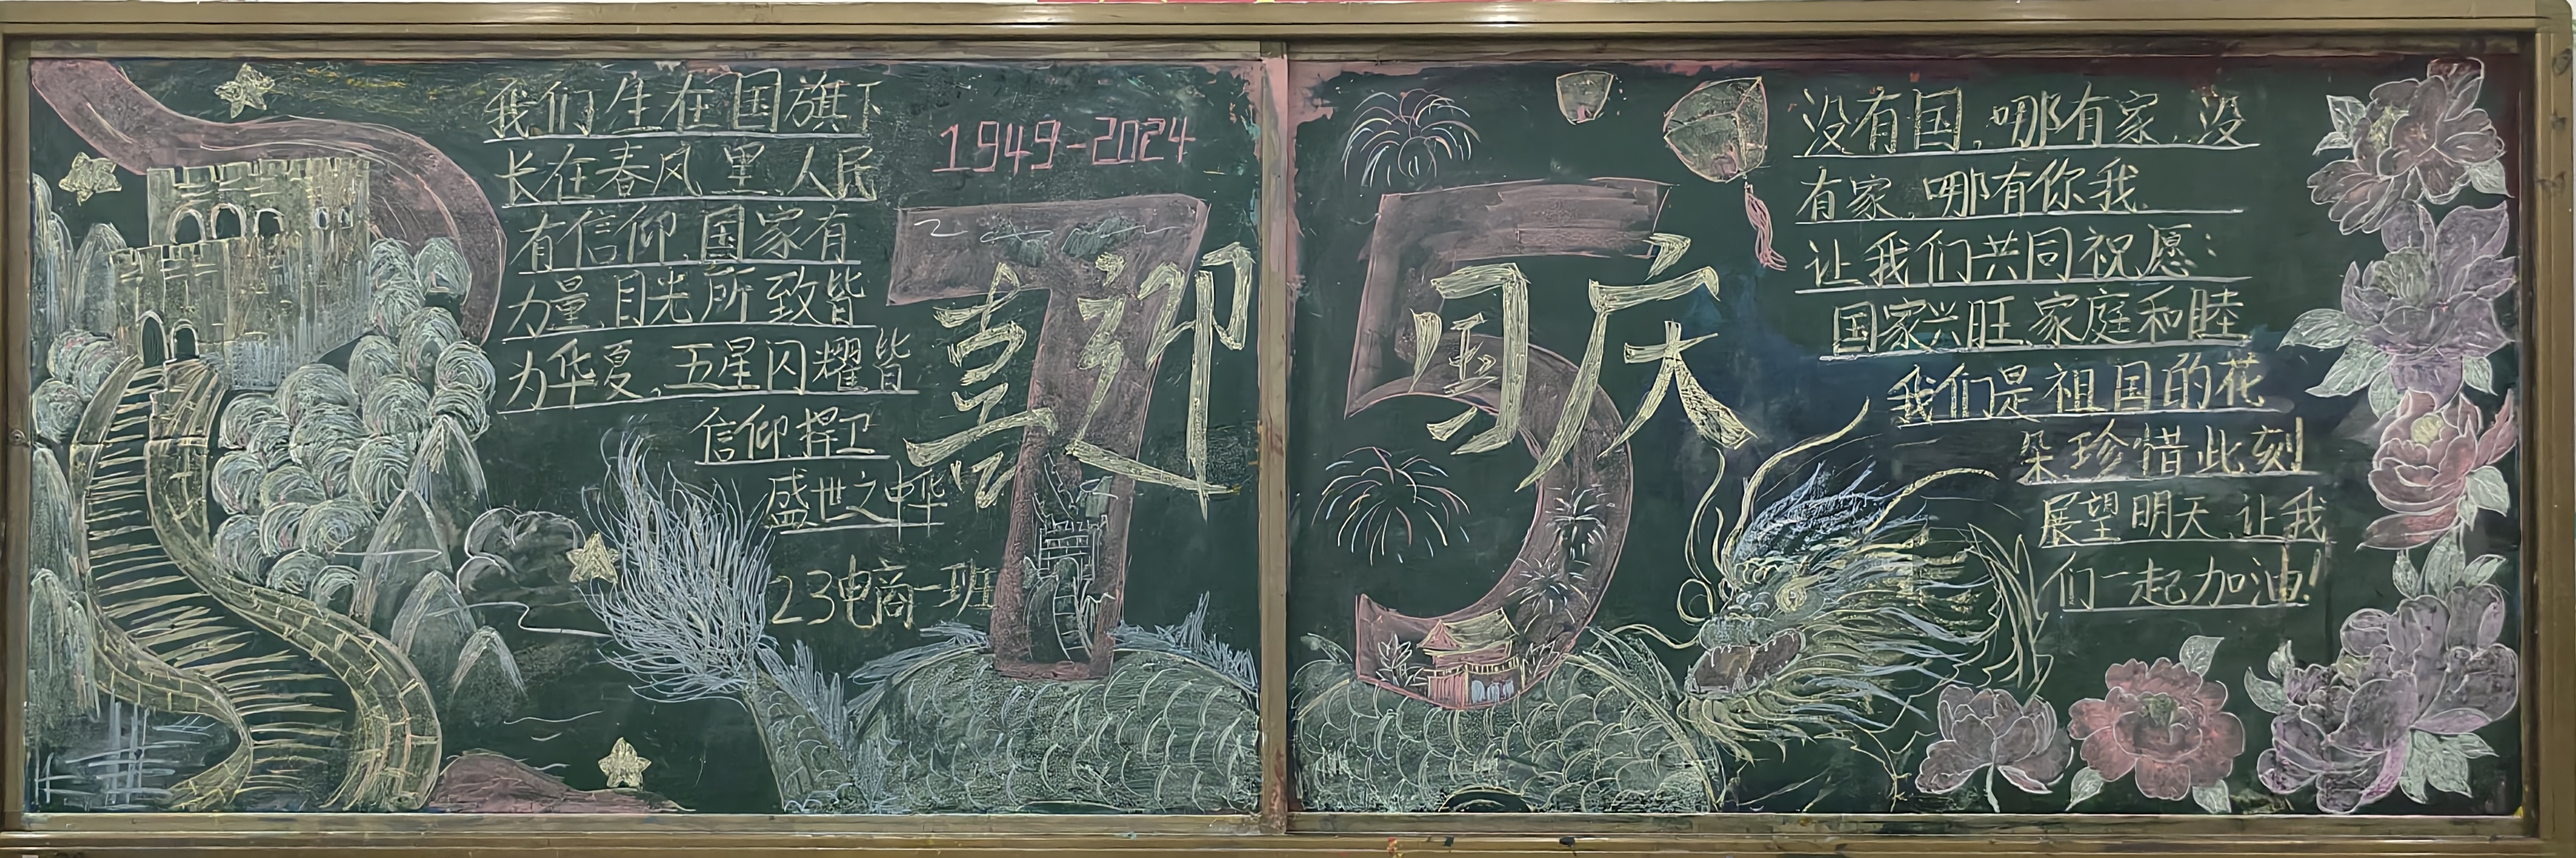 我们生在国旗下
长在春风里,人民
有信仰,国家有
力量,目光所致皆
为华夏,五星闪耀皆
信仰捍卫
盛世之中华
23电商一班
1949-2024
75
喜迎国庆
没有国,哪有家,没
有家,哪有你我.
让我们共同祝愿:
国家兴旺,家庭和睦
我们是祖国的花
朵珍惜此刻
展望明天,让我
们一起加油!